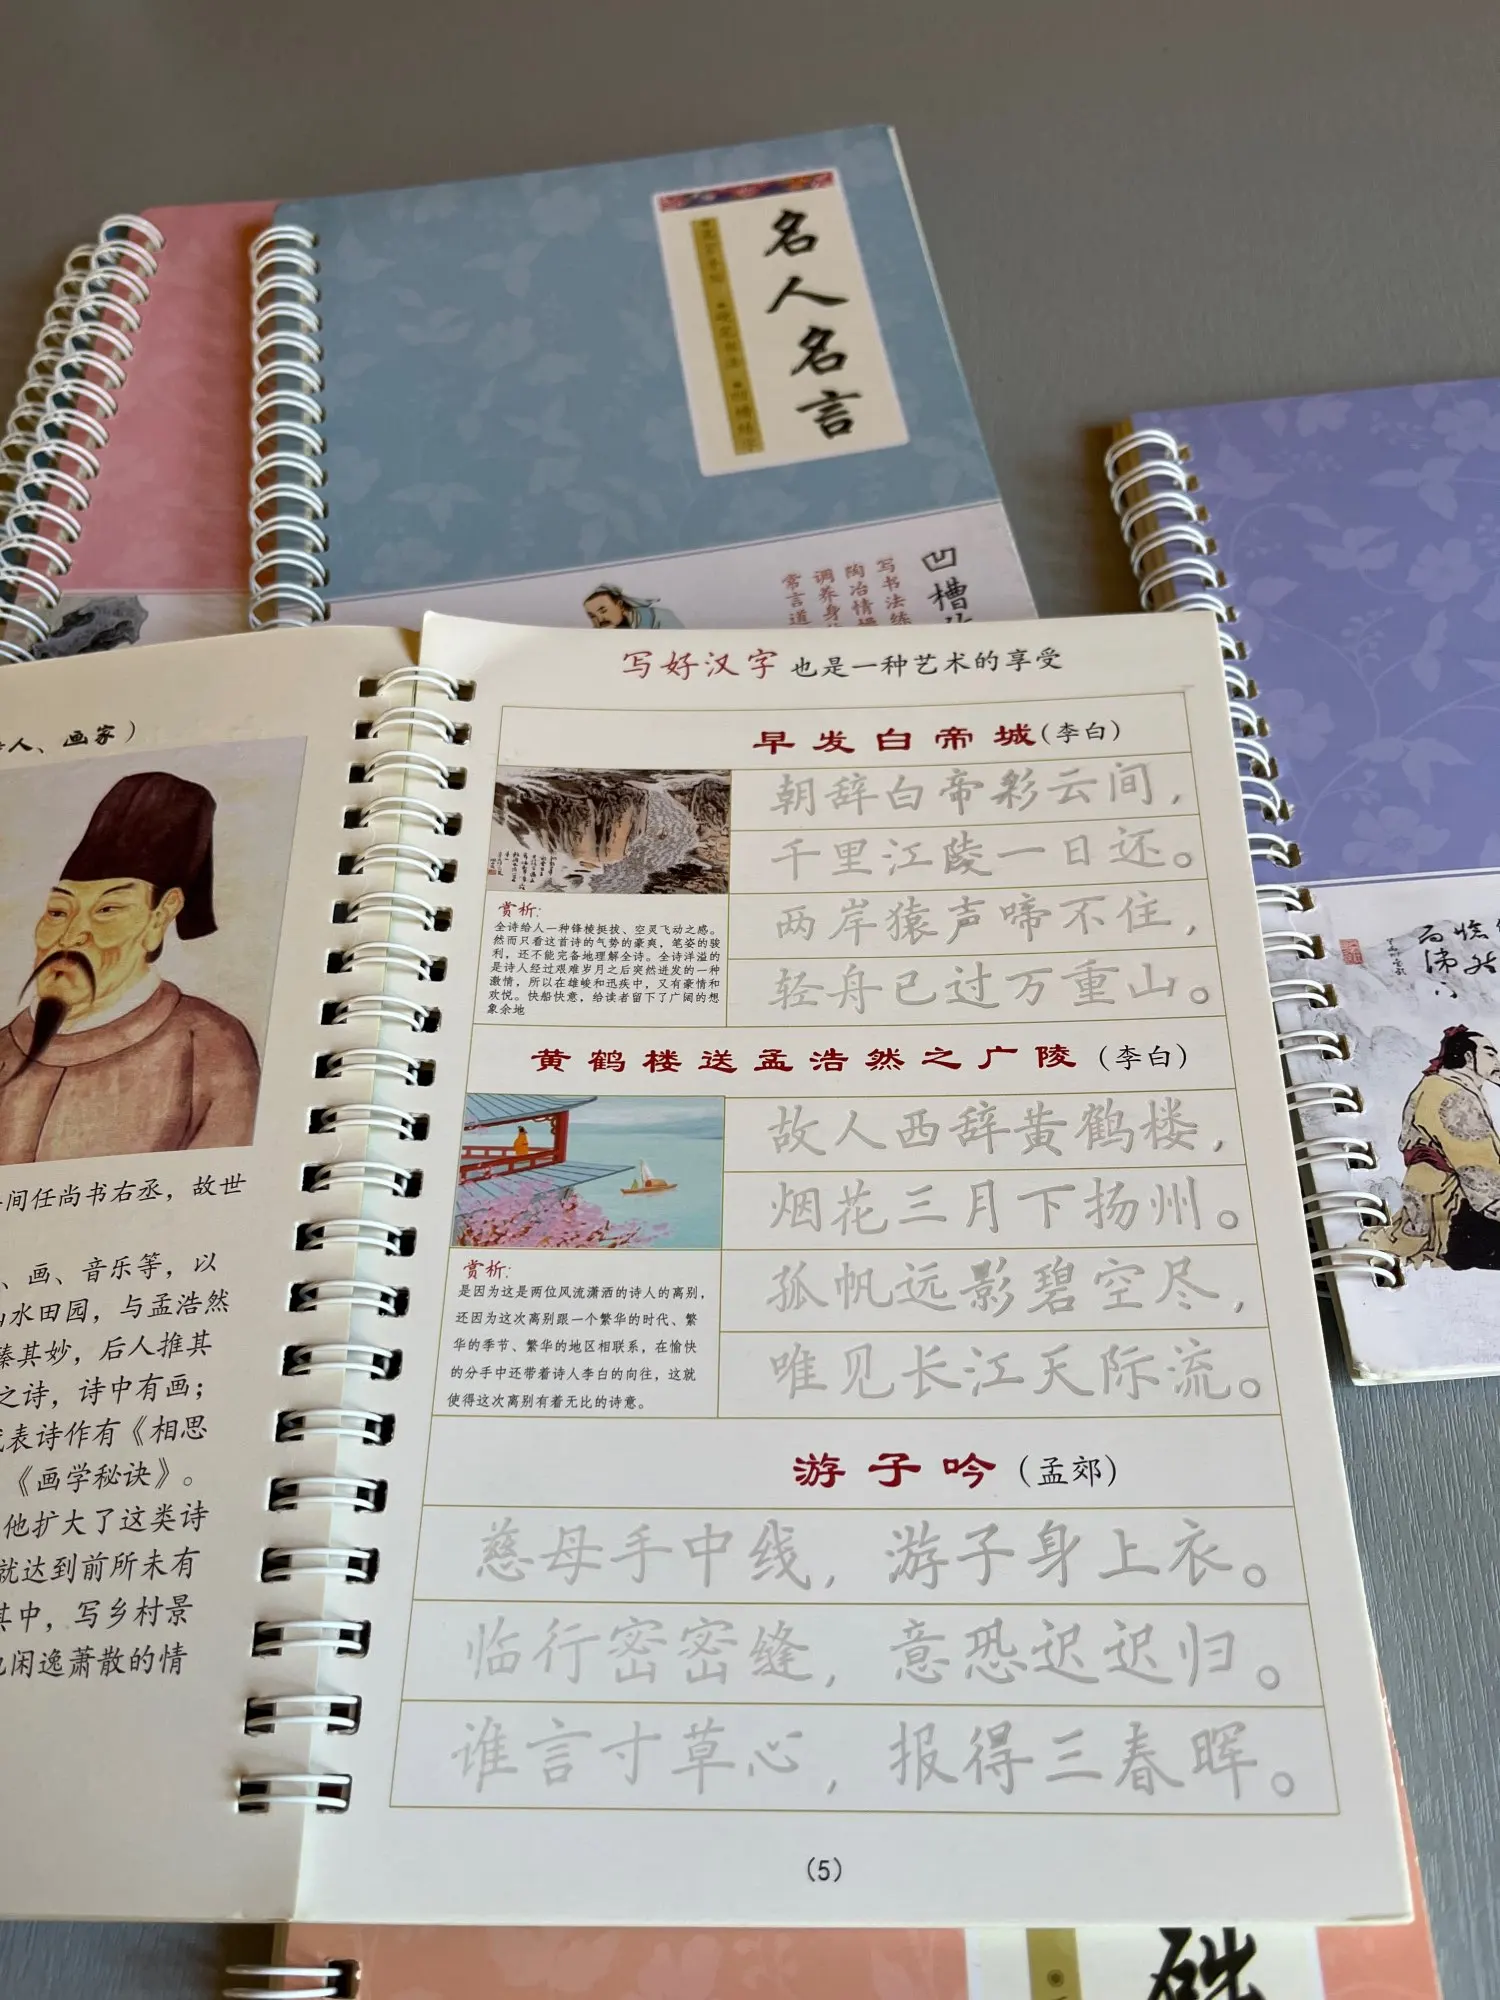 名人名言
凹槽
写书法练
陶冶情操
调养身
常言道
写好汉字 也是一种艺术的享受
早发白帝城(李白)
朝辞白帝彩云间，
千里江陵一日还。
两岸猿声啼不住，
轻舟已过万重山。
赏析:
全诗给人一种锋棱挺拔、空灵飞动之感。
然而只看这首诗的气势的豪爽，笔姿的骏
利，还不能完备地理解全诗。全诗洋溢的
是诗人经过艰难岁月之后突然迸发的一种
激情，所以在雄峻和迅疾中，又有豪情和
欢悦。快船快意，给读者留下了广阔的想
象余地
黄鹤楼送孟浩然之广陵(李白)
故人西辞黄鹤楼，
烟花三月下扬州。
孤帆远影碧空尽，
唯见长江天际流。
赏析:
是因为这是两位风流潇洒的诗人的离别，
还因为这次离别跟一个繁华的时代、繁
华的季节、繁华的地区相联系，在愉快
的分手中还带着诗人李白的向往，这就
使得这次离别有着无比的诗意。
游子吟(孟郊)
慈母手中线，游子身上衣。
临行密密缝，意恐迟迟归。
谁言寸草心，报得三春晖。
(5)
人、画家)
间任尚书右丞，故世
、画、音乐等，以
山水田园，与孟浩然
臻其妙，后人推其
之诗，诗中有画；
代表诗作有《相思
《画学秘诀》。
他扩大了这类诗
就达到前所未有
其中，写乡村景
闲逸萧散的情